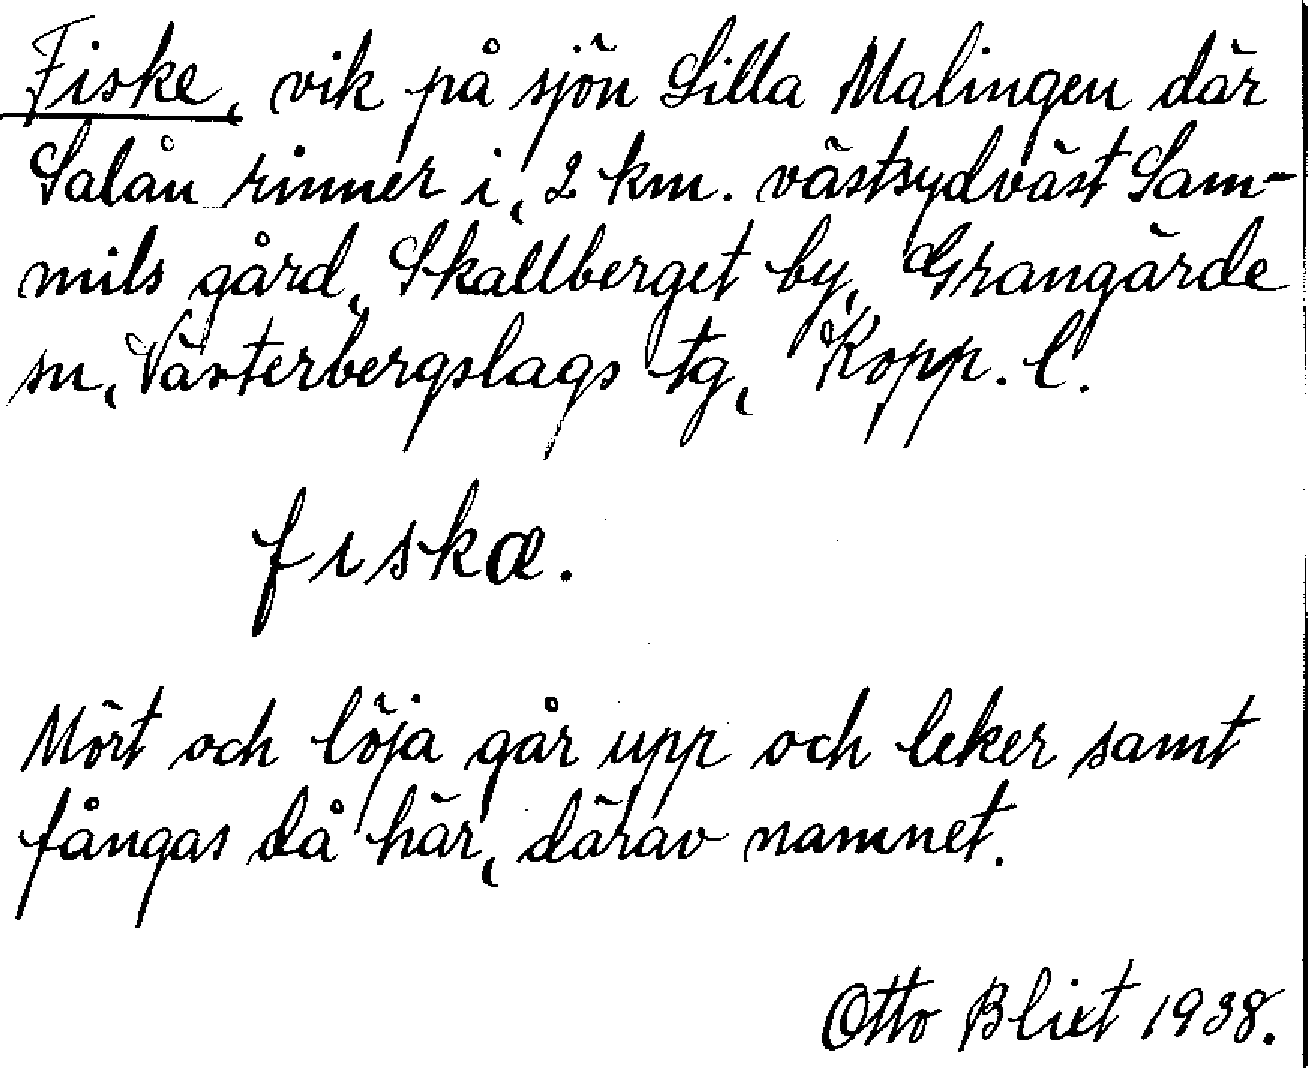 Fiske, vik på sjön Lilla Malingen där
Salån rinner i, 2 km. västsydväst Sam-
mils gård, Skallberget by, Grangärde
sn, Västerbergslags tg, Kopp. l.
fıskæ.
Mört och löja går upp och leker samt
fångas då här, därav namnet.
Otto Blixt 1938.